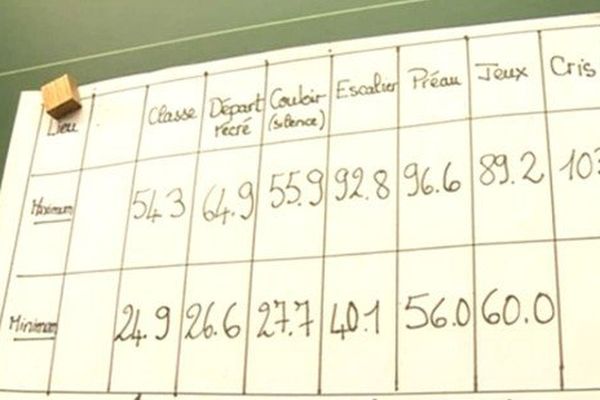 Lieu Classe Départ récré Couloir (silence) Escalier Préau Jeux Cris
Maximum 54.3 64.9 55.9 92.8 96.6 89.2 103
Minimum 24.9 26.6 27.7 40.1 56.0 60.0